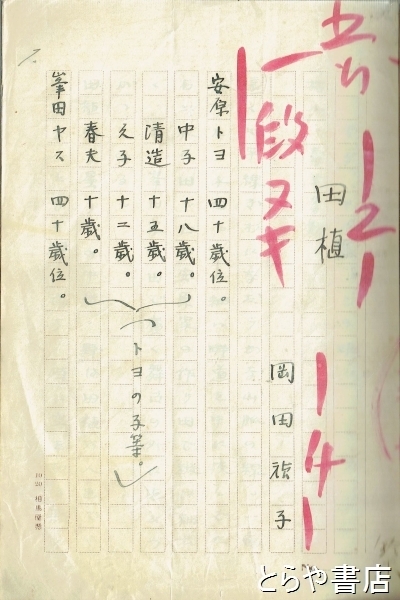 一段ヌキ
田植
岡田禎子
安原トヨ 四十歳位。
中子 十八歳。
清造 十五歳。
久子 十二歳。
春夫 十歳。
(トヨの子等。)
峯田ヤス 四十歳位。
とらや書店